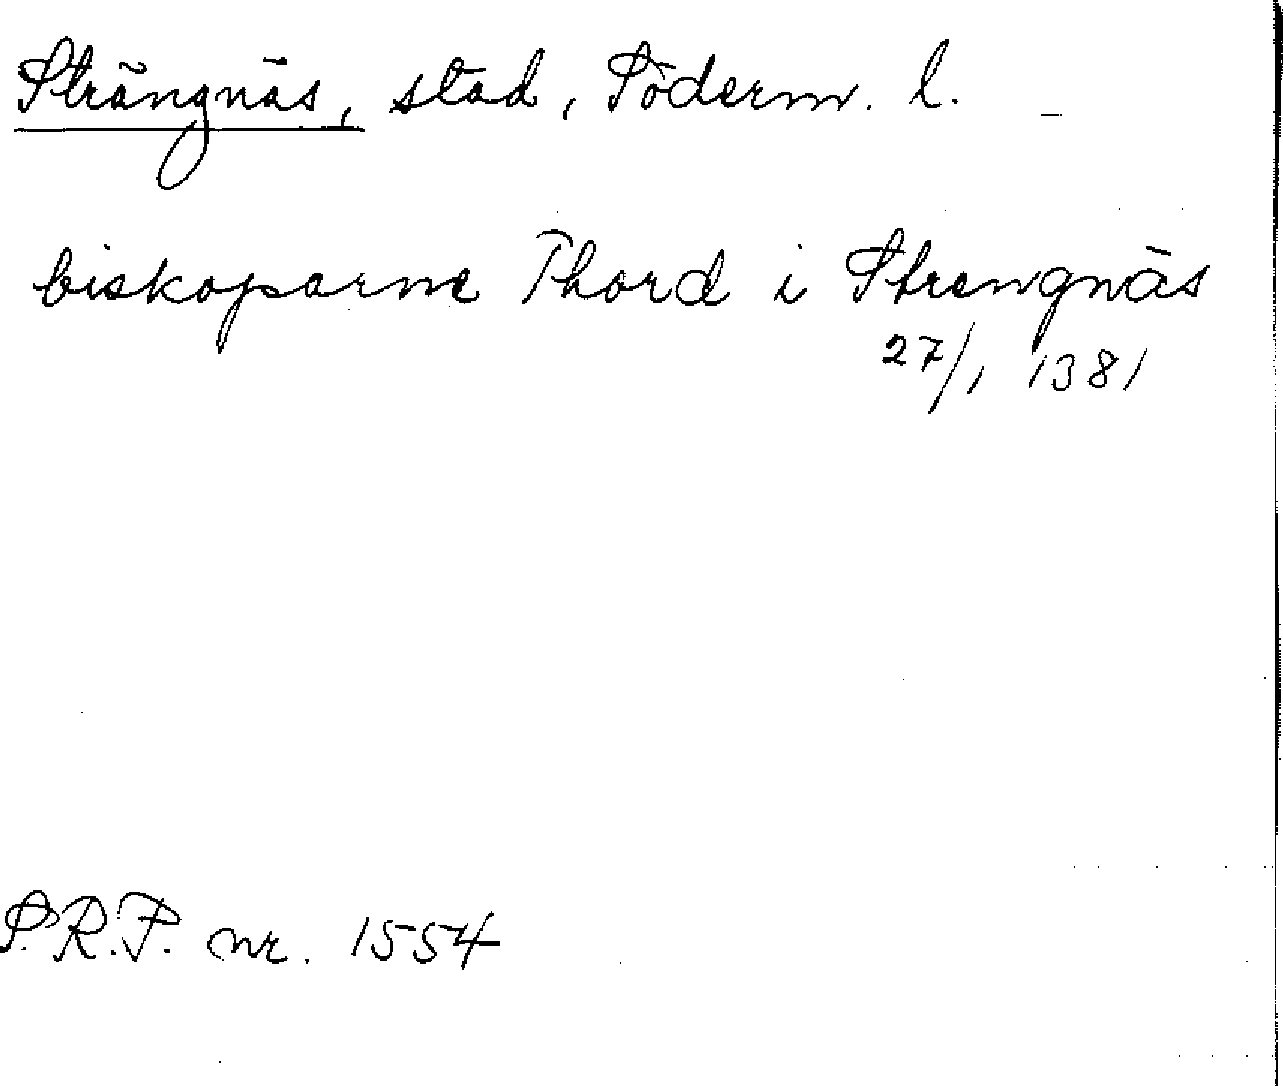 Strängnäs, stad, Söderm. l. –
biskoparne Thord i Strengnäs
27/1 1381
S.R.P. nr. 1554